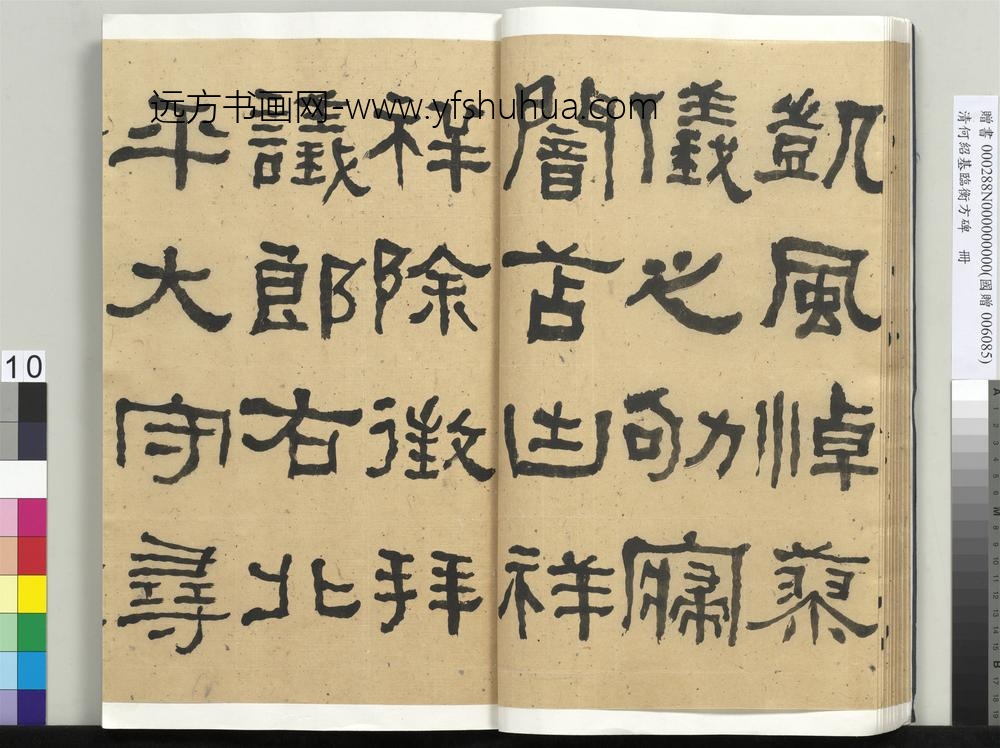 远方书画网-www.yfshuhua.com
凱風悼蓼
儀之劬寑
闇苫凷祥
祥除徵拜
議郎右北
平大守尋
贈書 000288N000000000(國贈 006085)
清何紹基臨衡方碑 冊
10